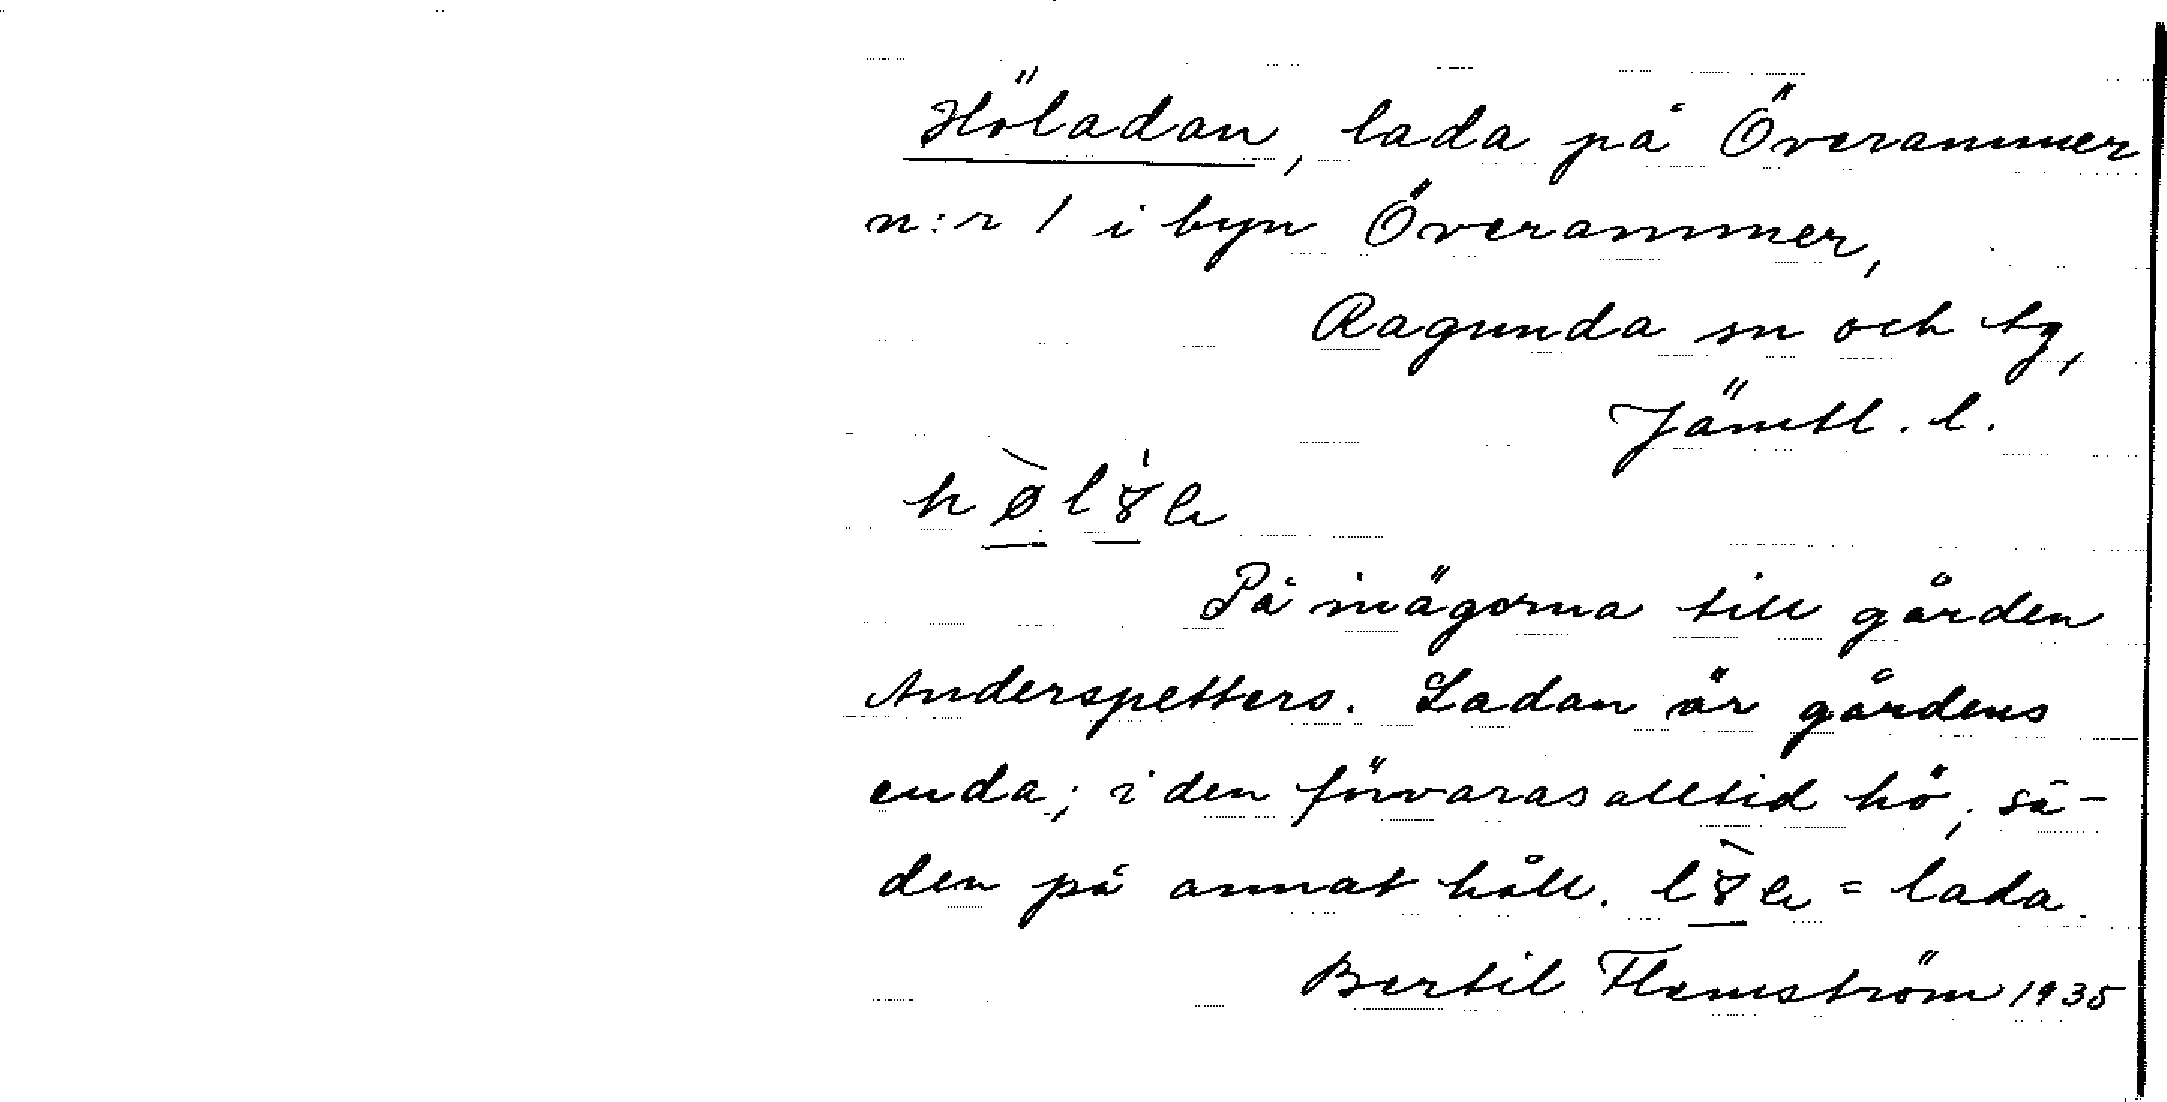 Höladan, lada på Överammer
n:r 1 i byn Överammer,
Ragunda sn och tg,
Jämtl. l.
På inägorna till gården
Anderspetters. Ladan är gårdens
enda; i den förvaras alltid hö, sä-
den på annat håll. = lada.
Bertil Flemström 1935